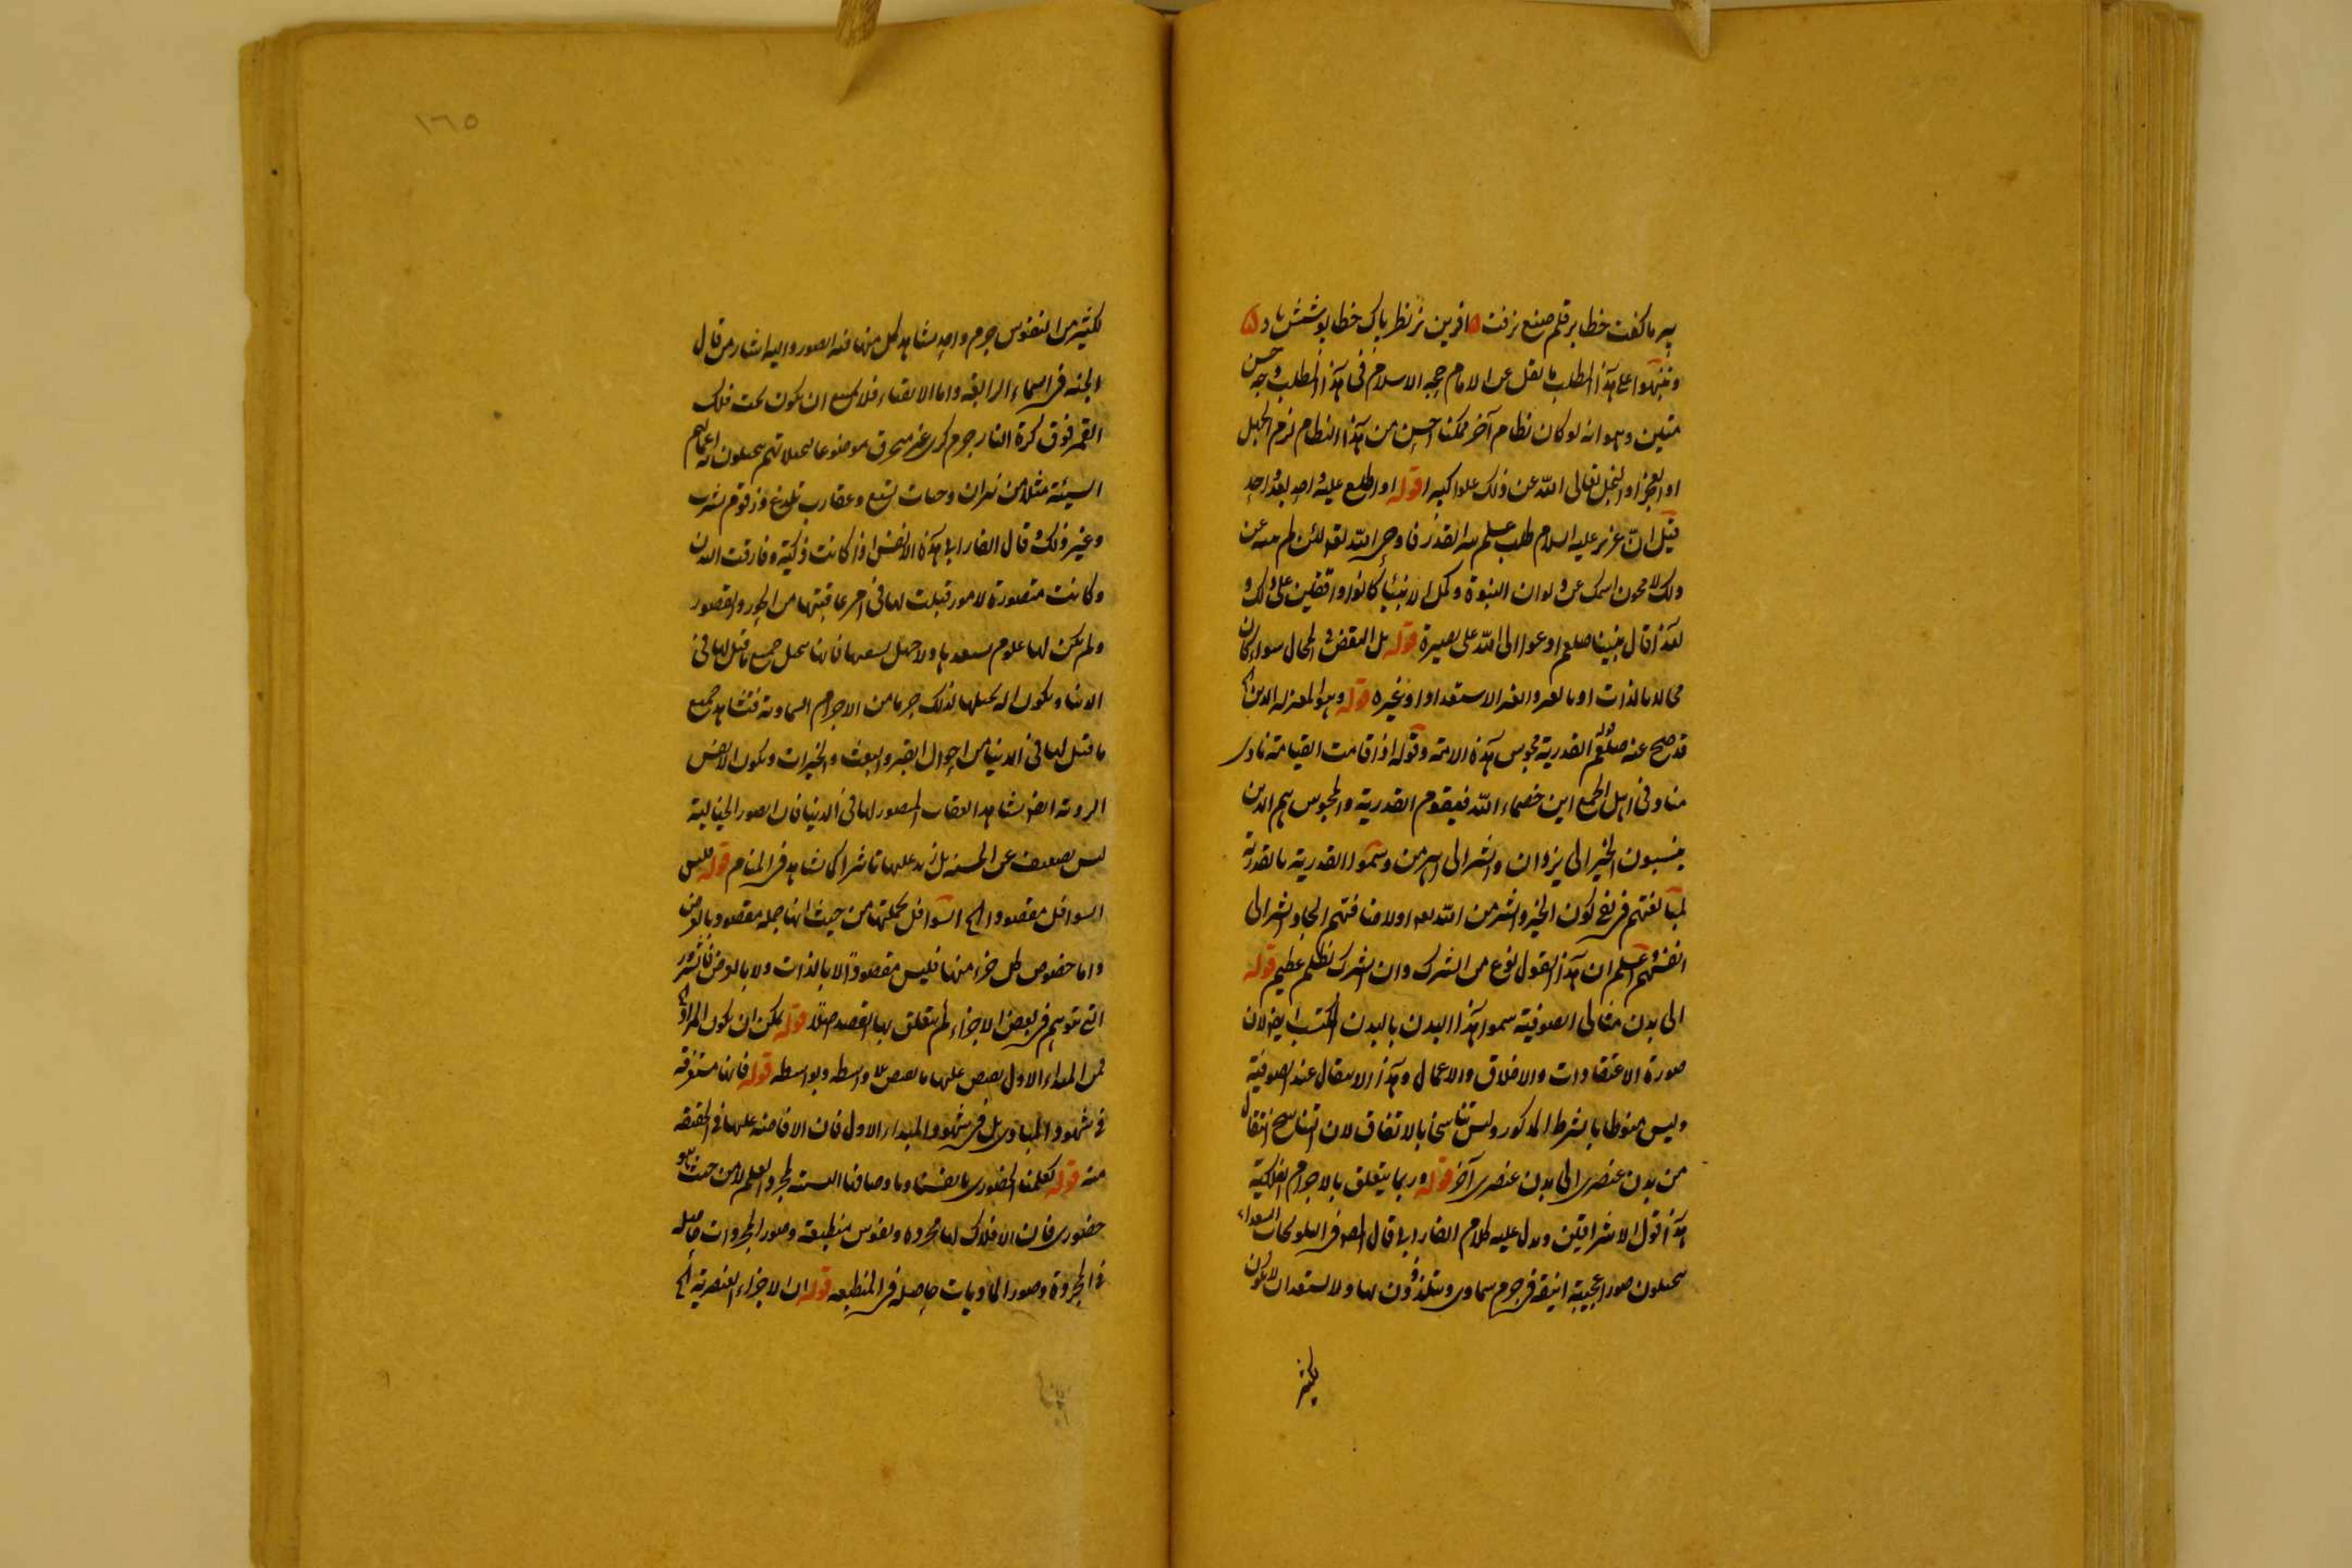 پیر ما گفت خطا بر قلم صنع نرفت ه آفرین بر نظر پاک خطا پوشش باد ه
ونبهوا على هذا المطلب ما نقل عن الامام حجة الاسلام في هذا المطلب وجه حسن
متين وهو انه لو كان نظام آخر ممكنا احسن من هذا النظام لزم الجهل
او العجز او البخل تعالى الله عن ذلك علوا كبيرا قوله او اطلع عليه واحد بعد واحد
قيل ان عزير عليه السلام طلب علم سر القدر فاوحى الله لئن لم عن
ذلك لامحون اسمك عن ديوان النبوة وكمل الانبياء كانوا واقفين على ذلك و
لهذا قال نبينا صلعم ادعوا الى الله على بصيرة قوله بل النقض الحال سواء كان
محالا بالذات او بالغير الاستعداد او غيره قوله وهو المعتزلة الذين الخ
قد صح عنه صلعم قوله القدرية مجوس هذه الامة وقوله اذا قامت القيامة نادى
مناد في اهل الجمع اين خصماء الله فيقوم القدرية والمجوس هم الذين
ينسبون الخير الى يزدان والشر الى اهرمن وسموا القدرية بالقدرية
لمبالغتهم في نفي كون الخير والشر من الله او لاضافتهم ايجاد الشر الى
انفسهم واعلم ان هذا القول نوع من الشرك وان الشرك لظلم عظيم قوله
الى بدن مثالى الصوفية سموا هذا البدن بالبدن المكتسب ايضا لان
صورة الاعتقادات والاخلاق والاعمال وهذا الانتقال عند الصوفية
وليس منوطا بالشرط المذكور وليس تناسخا بالاتفاق لان التناسخ انتقال
من بدن عنصرى الى بدن عنصرى آخر قوله وربما يتعلق بالاجرام الفلكية
هذا قول الاشراقيين ويدل عليه كلام الفارابي قال المصـ في التلويحات السعداء
يتخيلون صورا عجيبة انيقة في جرم سماوى ويتلذذون بها ولا يستبعد ان يكون
لكثير
١٦٥
لكثير من النفوس جرم واحد يشاهد كل منها فيه الصور واليه اشار من قال
الجنة في السماء الرابعة واما الاشقياء فلا يمتنع ان يكون تحت فلك
القمر فوق كرة النار جرم كرى غير منخرق موضوعا لتخيلاتهم يتخيلون به اعمالهم
السيئة مثلا من نيران وحيات تلسع وعقارب تلدغ وزقوم يشرب
وغير ذلك وقال الفارابي هذه الانفس اذا كانت زكية وفارقت البدن
وكانت متصورة لامور قيلت لها في امر عاقبتها من الحور والقصور
ولم يكن لها علوم تسعدها ولا جهل يشقيها فانها يتخيل جميع ما قيل لها في
الدنيا ويكون آلة تخيلها لذلك جرما من الاجرام السماوية فتشاهد جميع
ما قيل لها في الدنيا من احوال القبر والبعث والخيرات ويكون الانفس
الردية ايضا يشاهد العقاب المصور لها في الدنيا فان الصور الخيالية
ليس بضعيف عن الحسية بل تزيد عليها تاثيرا كما يشاهد في المنام قوله فليس
السوافل مقصودا الخ السوافل بجملتها من حيث انها جملة مقصود بالعرض
واما خصوص كل جزء منها فليس مقصودا لا بالذات ولا بالعرض فالشرور
التى يتوهم في بعض الاجزاء لم يتعلق بها القصد اصلا قوله يمكن ان يكون المراد الخ
فمن المبداء الاول يفيض عليها ما يفيض بلا واسطة وبواسطة قوله فانها مستغرقة
في شهود المبادى بل في شهود المبداء الاول فان الافاضة عليها في الحقيقة
منه قوله كعلمنا الحضورى بانفسنا وباوصافنا العلم لا من حيث هو
حضورى فان الافلاك لها مجردة ونفوس منطبعة وصور المجردات حاصلة
في المجردة وصور الماديات حاصلة في المنطبعة قوله ان الاجزاء العنصرية الخ